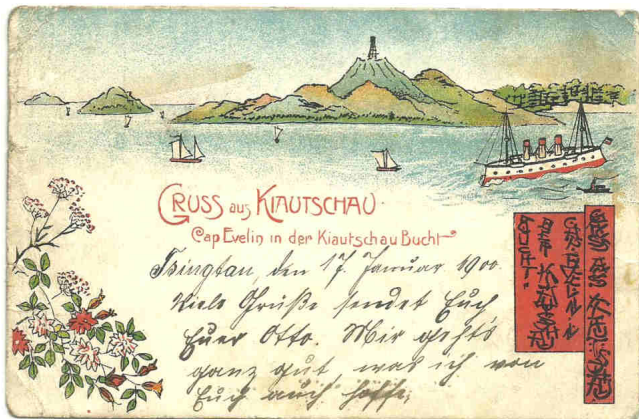 GRUSS aus KIAUTSCHAU
Cap Evelin in der Kiautschau Bucht
Tsingtau, den 17. Januar 1900.
Viele Grüße sendet Euch
Euer Otto. Mir geht's
ganz gut, was ich von
Euch auch hoffe.
GRUSS AUS KIAUTSCHAU
CAP EVELIN IN
DER KIAUTSCHAU
BUCHT